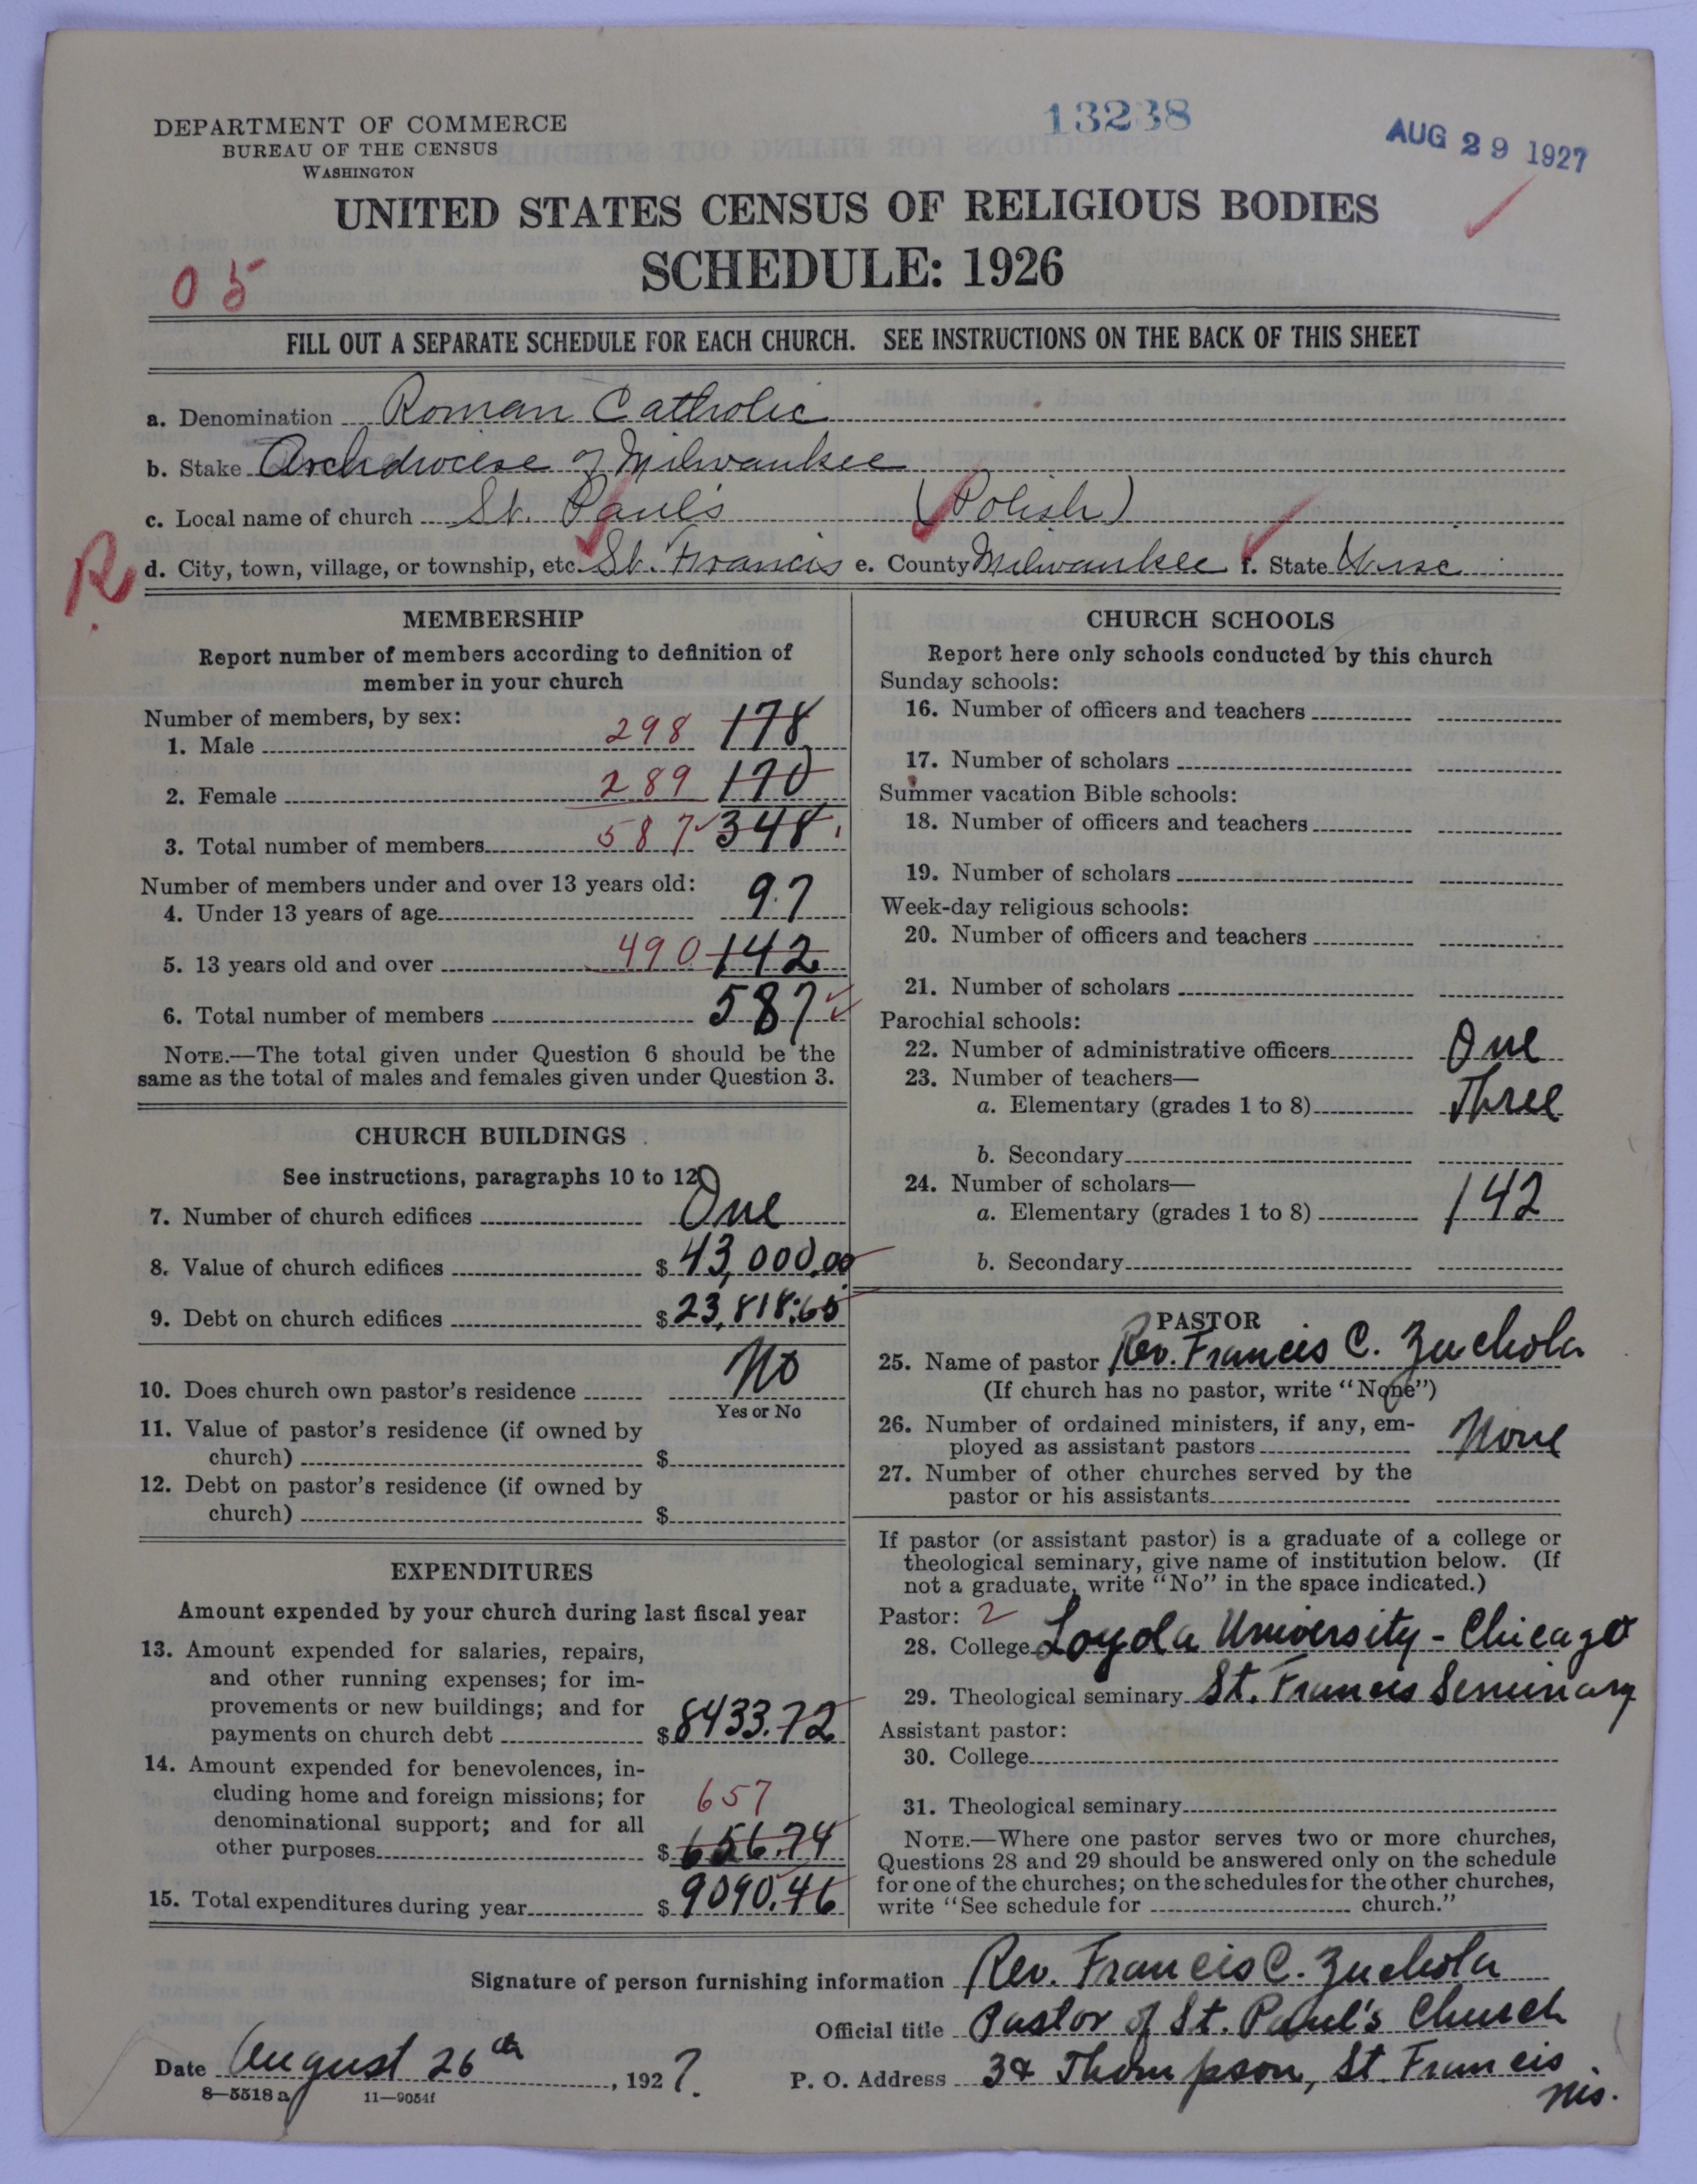 DEPARTMENT OF COMMERCE
BUREAU OF THE CENSUS
WASHINGTON
13238
AUG 29 1927
UNITED STATES CENSUS OF RELIGIOUS BODIES
SCHEDULE: 1926
05
FILL OUT A SEPARATE SCHEDULE FOR EACH CHURCH. SEE INSTRUCTIONS ON THE BACK OF THIS SHEET
a. Denomination Roman Catholic
b. Stake Archdiocese of Milwaukee
c. Local name of church St. Paul's (Polish)
R d. City, town, village, or township, etc. St. Francis e. County Milwaukee f. State Wisc
MEMBERSHIP
Report number of members according to definition of
member in your church
Number of members, by sex:
1. Male 298 178
2. Female 289 170
3. Total number of members 587 348
Number of members under and over 13 years old:
4. Under 13 years of age 97
5. 13 years old and over 490 142
6. Total number of members 587
NOTE.—The total given under Question 6 should be the
same as the total of males and females given under Question 3.
CHURCH BUILDINGS
See instructions, paragraphs 10 to 12
7. Number of church edifices One
8. Value of church edifices $ 43,000.00
9. Debt on church edifices $ 23,818.65
10. Does church own pastor's residence No
Yes or No
11. Value of pastor's residence (if owned by
church) $
12. Debt on pastor's residence (if owned by
church) $
EXPENDITURES
Amount expended by your church during last fiscal year
13. Amount expended for salaries, repairs,
and other running expenses; for im-
provements or new buildings; and for
payments on church debt $ 8433.72
14. Amount expended for benevolences, in-
cluding home and foreign missions; for 657
denominational support; and for all
other purposes $ 656.74
15. Total expenditures during year $ 9090.46
CHURCH SCHOOLS
Report here only schools conducted by this church
Sunday schools:
16. Number of officers and teachers
17. Number of scholars
Summer vacation Bible schools:
18. Number of officers and teachers
19. Number of scholars
Week-day religious schools:
20. Number of officers and teachers
21. Number of scholars
Parochial schools:
22. Number of administrative officers One
23. Number of teachers—
a. Elementary (grades 1 to 8) Three
b. Secondary
24. Number of scholars—
a. Elementary (grades 1 to 8) 142
b. Secondary
PASTOR
25. Name of pastor Rev. Francis C. Zuchola
(If church has no pastor, write "None")
26. Number of ordained ministers, if any, em-
ployed as assistant pastors None
27. Number of other churches served by the
pastor or his assistants
If pastor (or assistant pastor) is a graduate of a college or
theological seminary, give name of institution below. (If
not a graduate, write "No" in the space indicated.)
Pastor: 2
28. College Loyola University - Chicago
29. Theological seminary St. Francis Seminary
Assistant pastor:
30. College
31. Theological seminary
NOTE.—Where one pastor serves two or more churches,
Questions 28 and 29 should be answered only on the schedule
for one of the churches; on the schedules for the other churches,
write "See schedule for church."
Signature of person furnishing information Rev. Francis C. Zuchola
Official title Pastor of St. Paul's Church
Date August 26th, 1927.
P. O. Address 34 Thompson, St. Francis
Wis.
8—5518 a 11—9054f